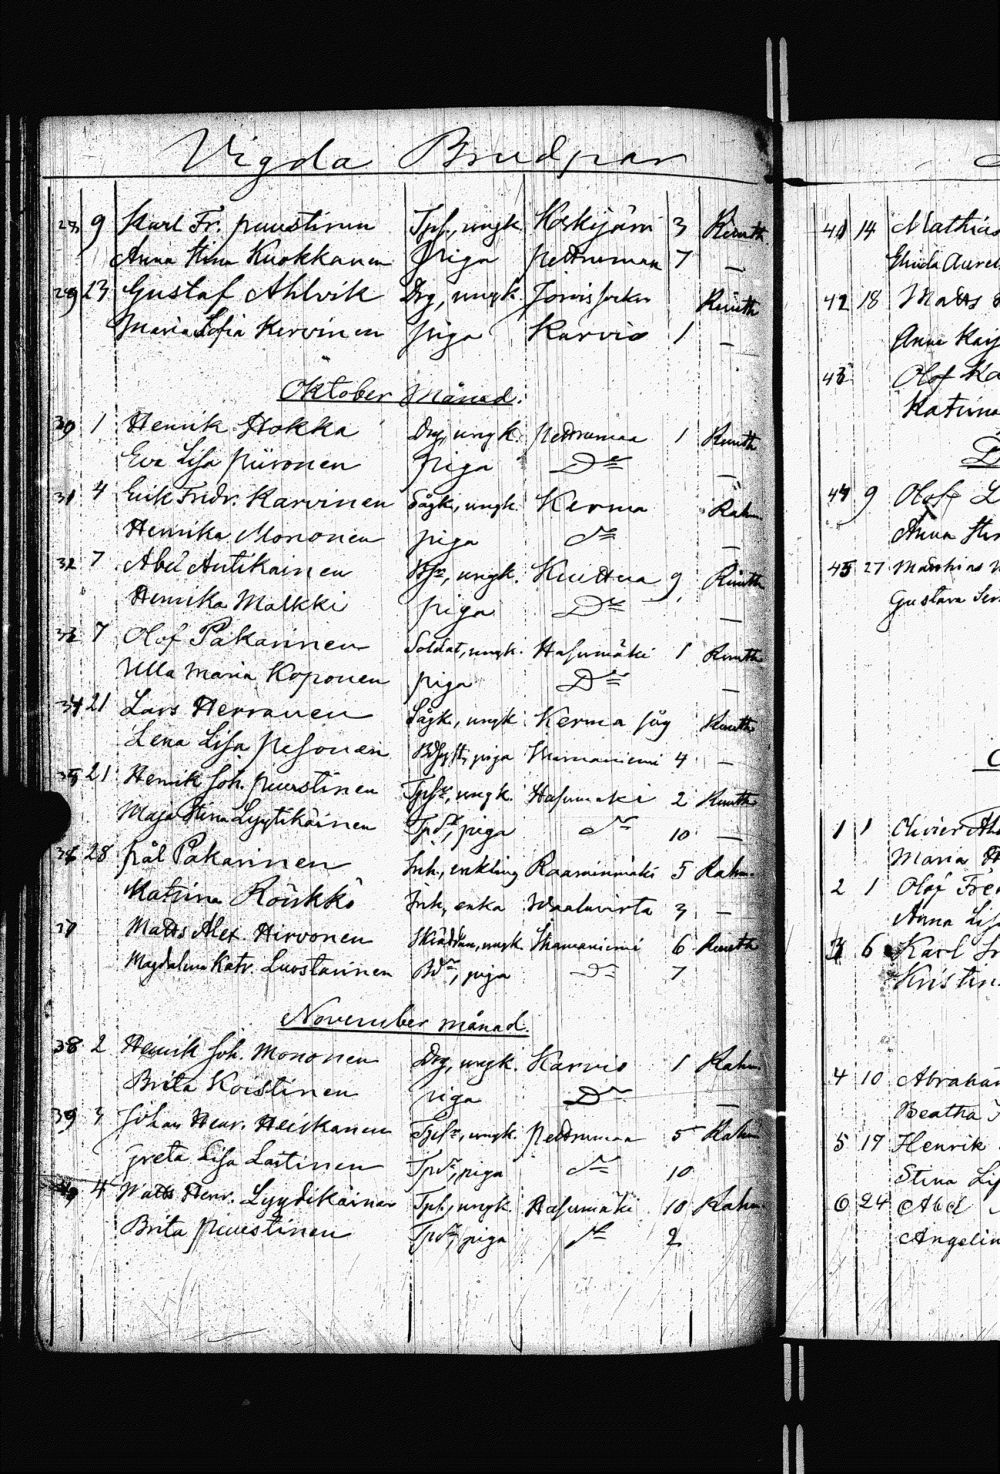 Vigda Brudpar
28 9 Karl Fr. Puustinen Tpf., ungk. Koskijärvi 3 Ruuth
Anna Stina Kuokkanen piga Pettrumaa 7 —
29 23 Gustaf Ahlvik Drg, ungk. Ruuth
Maria Sofia Kervinen piga Karvio 1 —
Oktober Månad.
30 1 Henrik Hokka Drg, ungk. Pettrumaa 1 Ruuth
Eva Lisa Piironen piga Do —
31 4 Erik Fridr. Karvinen Sågk., ungk. Kerma Rahm
Henrika Mononen piga do —
32 7 Abel Antikainen ungk. Kuttua 9 Ruuth
Henrika Malkki piga Do —
33 7 Olof Pakarinen Soldat, ungk. Hasumäki 1 Ruuth
Ulla Maria Koponen piga Do —
34 21 Lars Herranen Sågk., ungk. Kerma såg Ruuth
Lena Lisa Pesonen piga 4 —
35 21 Henrik Joh. Puustinen ungk. Hasumäki 2 Ruuth
Maja Stina Lyytikäinen Tpdr, piga do 10 —
36 28 Pål Pakarinen Inh., enkling 5 Rahm
Katrina Röiskkö Inh, enka Waaluvirta 3 —
37 Matts Alex. Hirvonen ungk. 6 Ruuth
Magdalena Katr. Luostarinen Bdr, piga do 7
November månad.
38 2 Henrik Joh. Mononen Drg, ungk. Karvio 1 Rahm
Brita Koistinen piga Do —
39 3 Johan Henr. Heiskanen ungk. Pettrumaa 5 Rahm
Greta Lisa Lastinen Tpdr, piga do 10
40 4 Matts Henr. Lyydikäinen Tpf, ungk. Hasumäki 10 Rahm
Brita Puustinen Tpdr, piga do 2
41 14 Mathias
42 18 Matts
Anna Kaj
43 Olof Ka
Katrina
44 9 Olof L
Anna Sti
45 27 Matthias
Gustava
1 1 Olivier
Maria
2 1 Olof Fre
Anna Lis
3 6 Karl
Kristin
4 10 Abraham
Beatha
5 17 Henrik
Stina Lis
6 24 Abel
Angelin